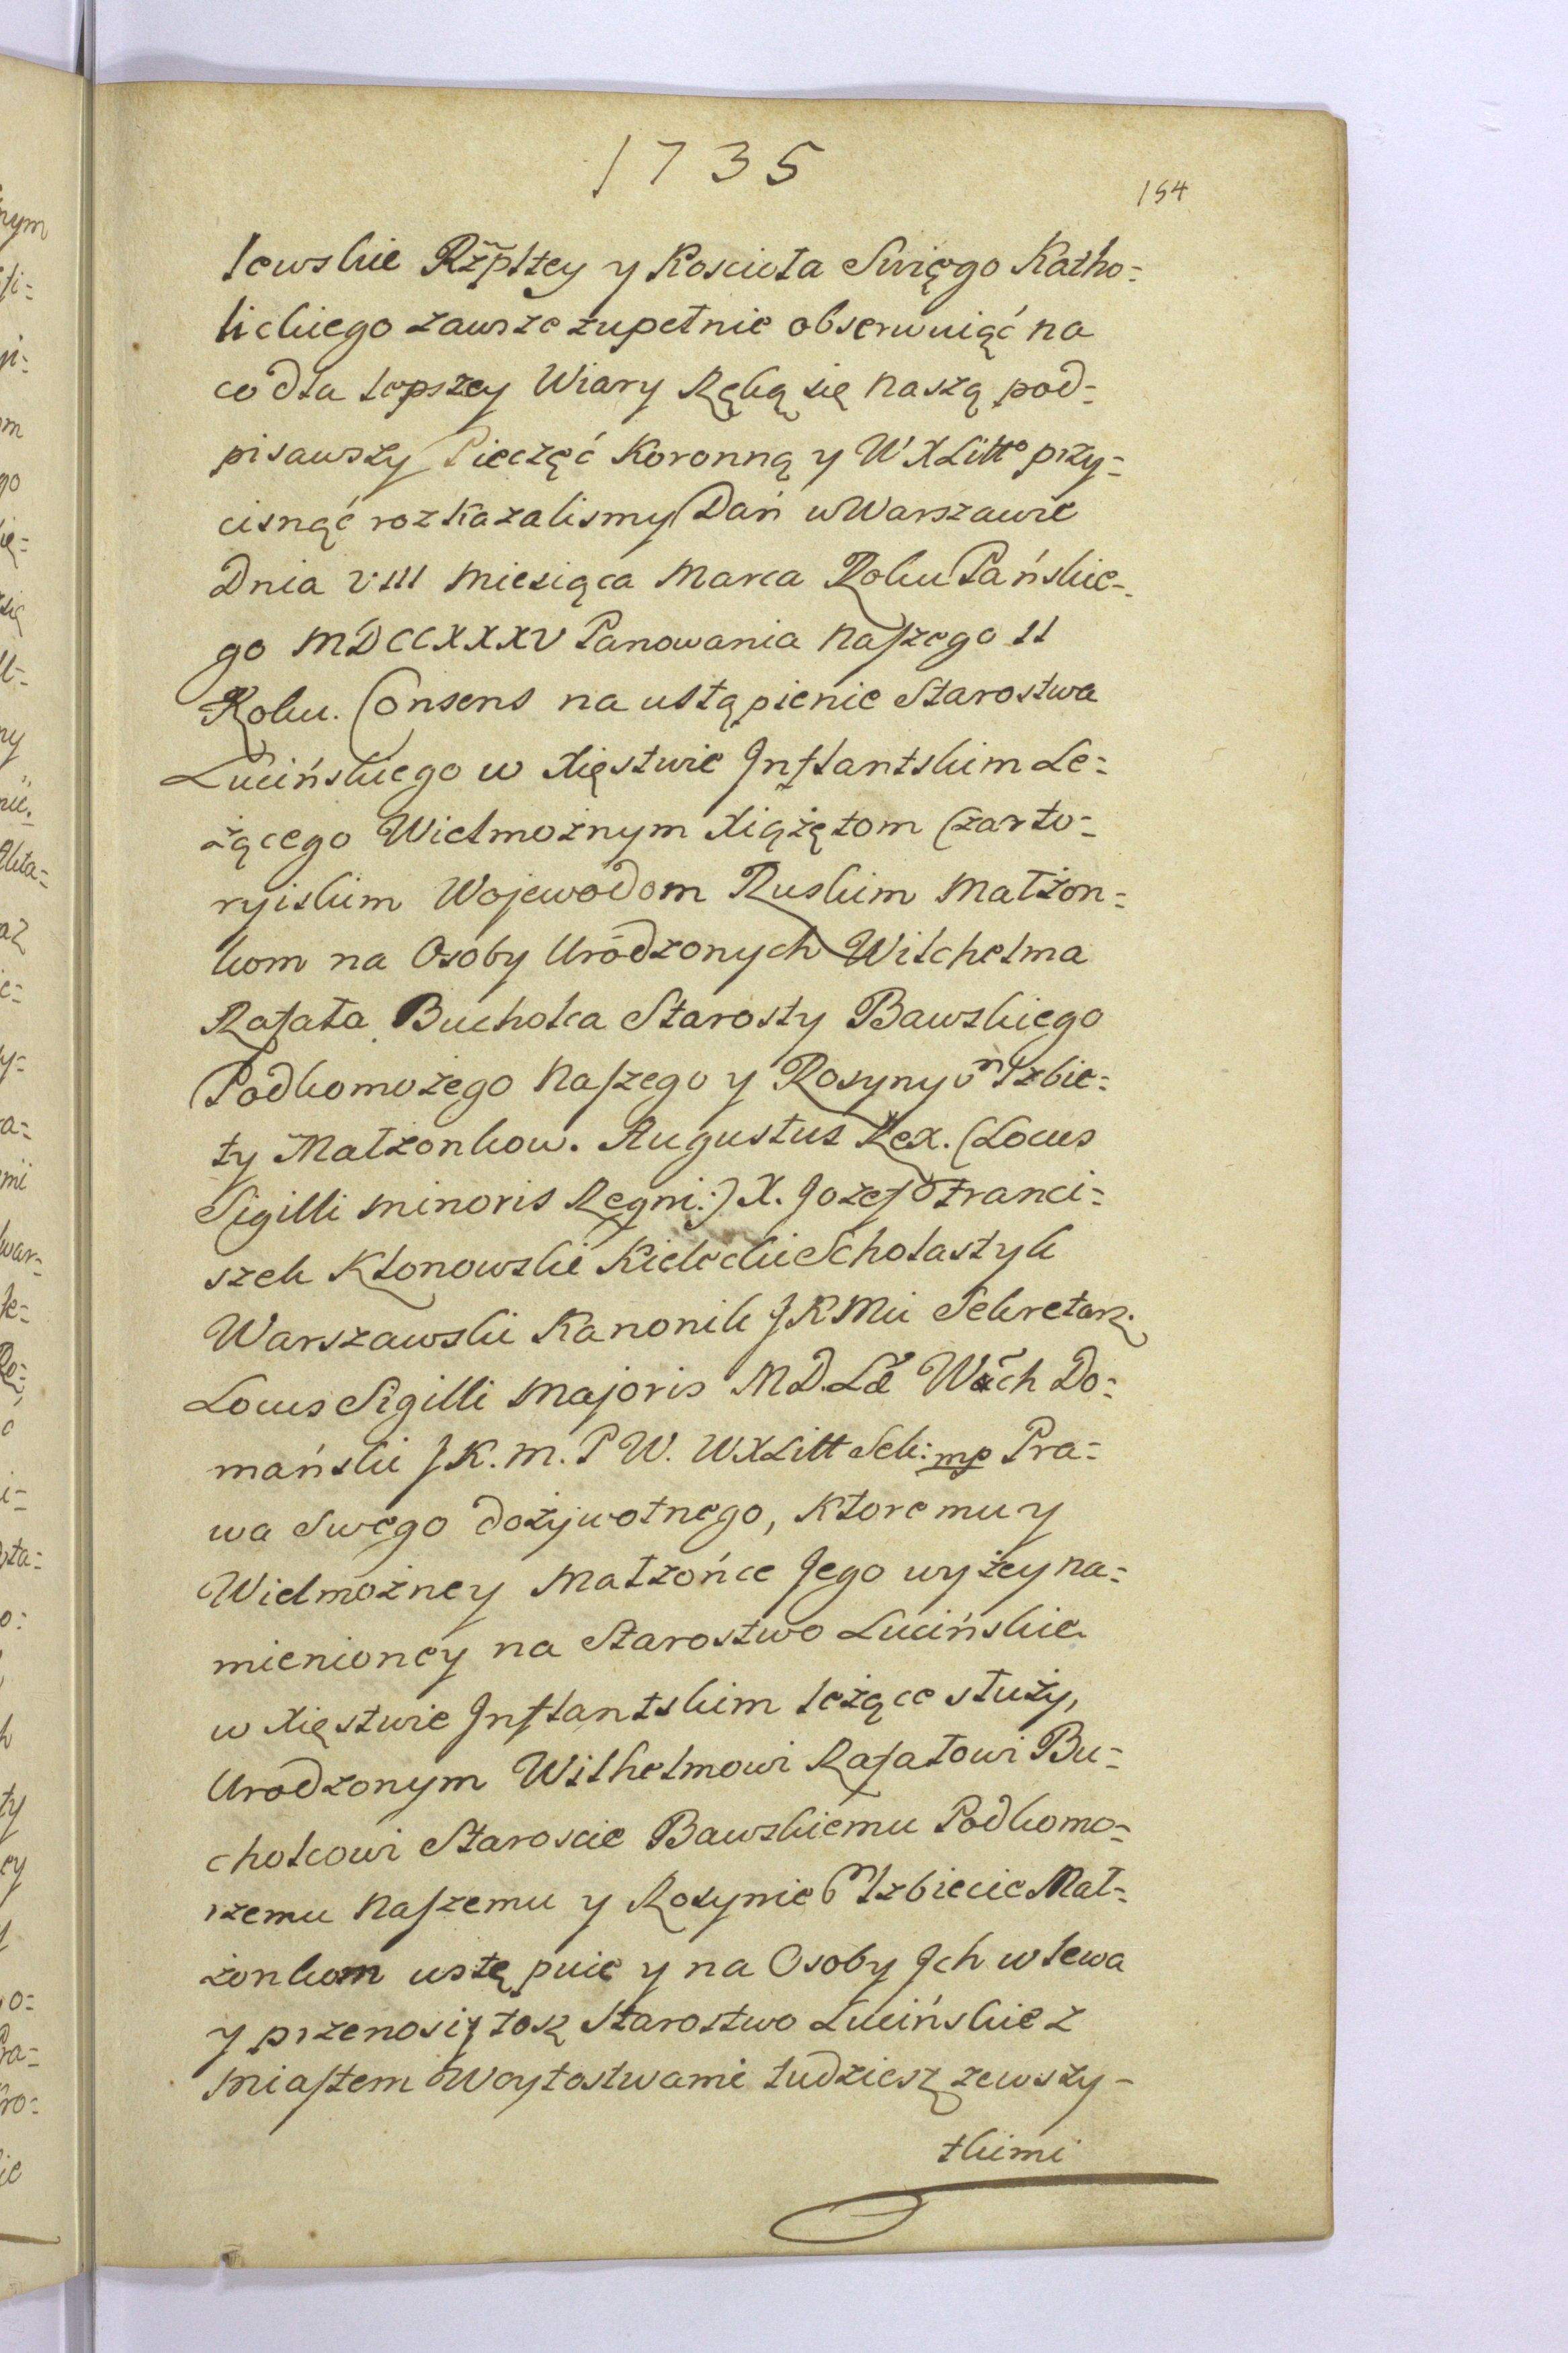 1735
154
lewskie Rzpltey y Koscioła Swięgo Katho=
lickiego zawsze zupełnie obserwuiąc na
co dla lepszey Wiary Ręką się naszą pod=
pisawszy Pieczęć Koronną y W X Litto przy=
cisnąć rozkazalismy Dań w Warszawie
Dnia VIII Miesiąca Marca Roku Pańskie=
go MDCCXXXV Panowania Naszego II
Roku. Consens na ustąpienie Starostwa
Lucińskiego w Xięstwie Inflantskim Le=
żącego Wielmożnym Xiążętom Czarto=
ryiskim Wojewodom Ruskim Małżon=
kom na Osoby Urodzonych Wilchelma
Rafała Bucholca Starosty Bawskiego
Podkomożego Naszego y Rozyny Elzbie=
ty Małzonkow. Augustus Rex. (Locus
Sigilli minoris Regni:) X. Jozef Franci=
szek Kłonowski Kielecki Scholastyk
Warszawski Kanonik J K Mci Sekretarz.
Locus Sigilli Majoris M D. Lae Wach Do=
mański J K. M. P W. W X Litt Sek: mp Pra=
wa Swego dożywotnego, Ktoremu y
Wielmożney Małzońce Jego wyżey na=
mienioney na Starostwo Lucińskie
w Xięstwie Inflantskim leżące służy,
Urodzonym Wilhelmowi Rafałowi Bu=
cholcowi Staroscie Bawskiemu Podkomo=
rzemu Naszemu y Rozynie Elzbiecie Mał=
żonkom ustępuie y na Osoby Ich wlewa
y przenosi, tosz Starostwo Lucińskie z
Miastem Woytostwami tudziesz zewszy=
tkimi